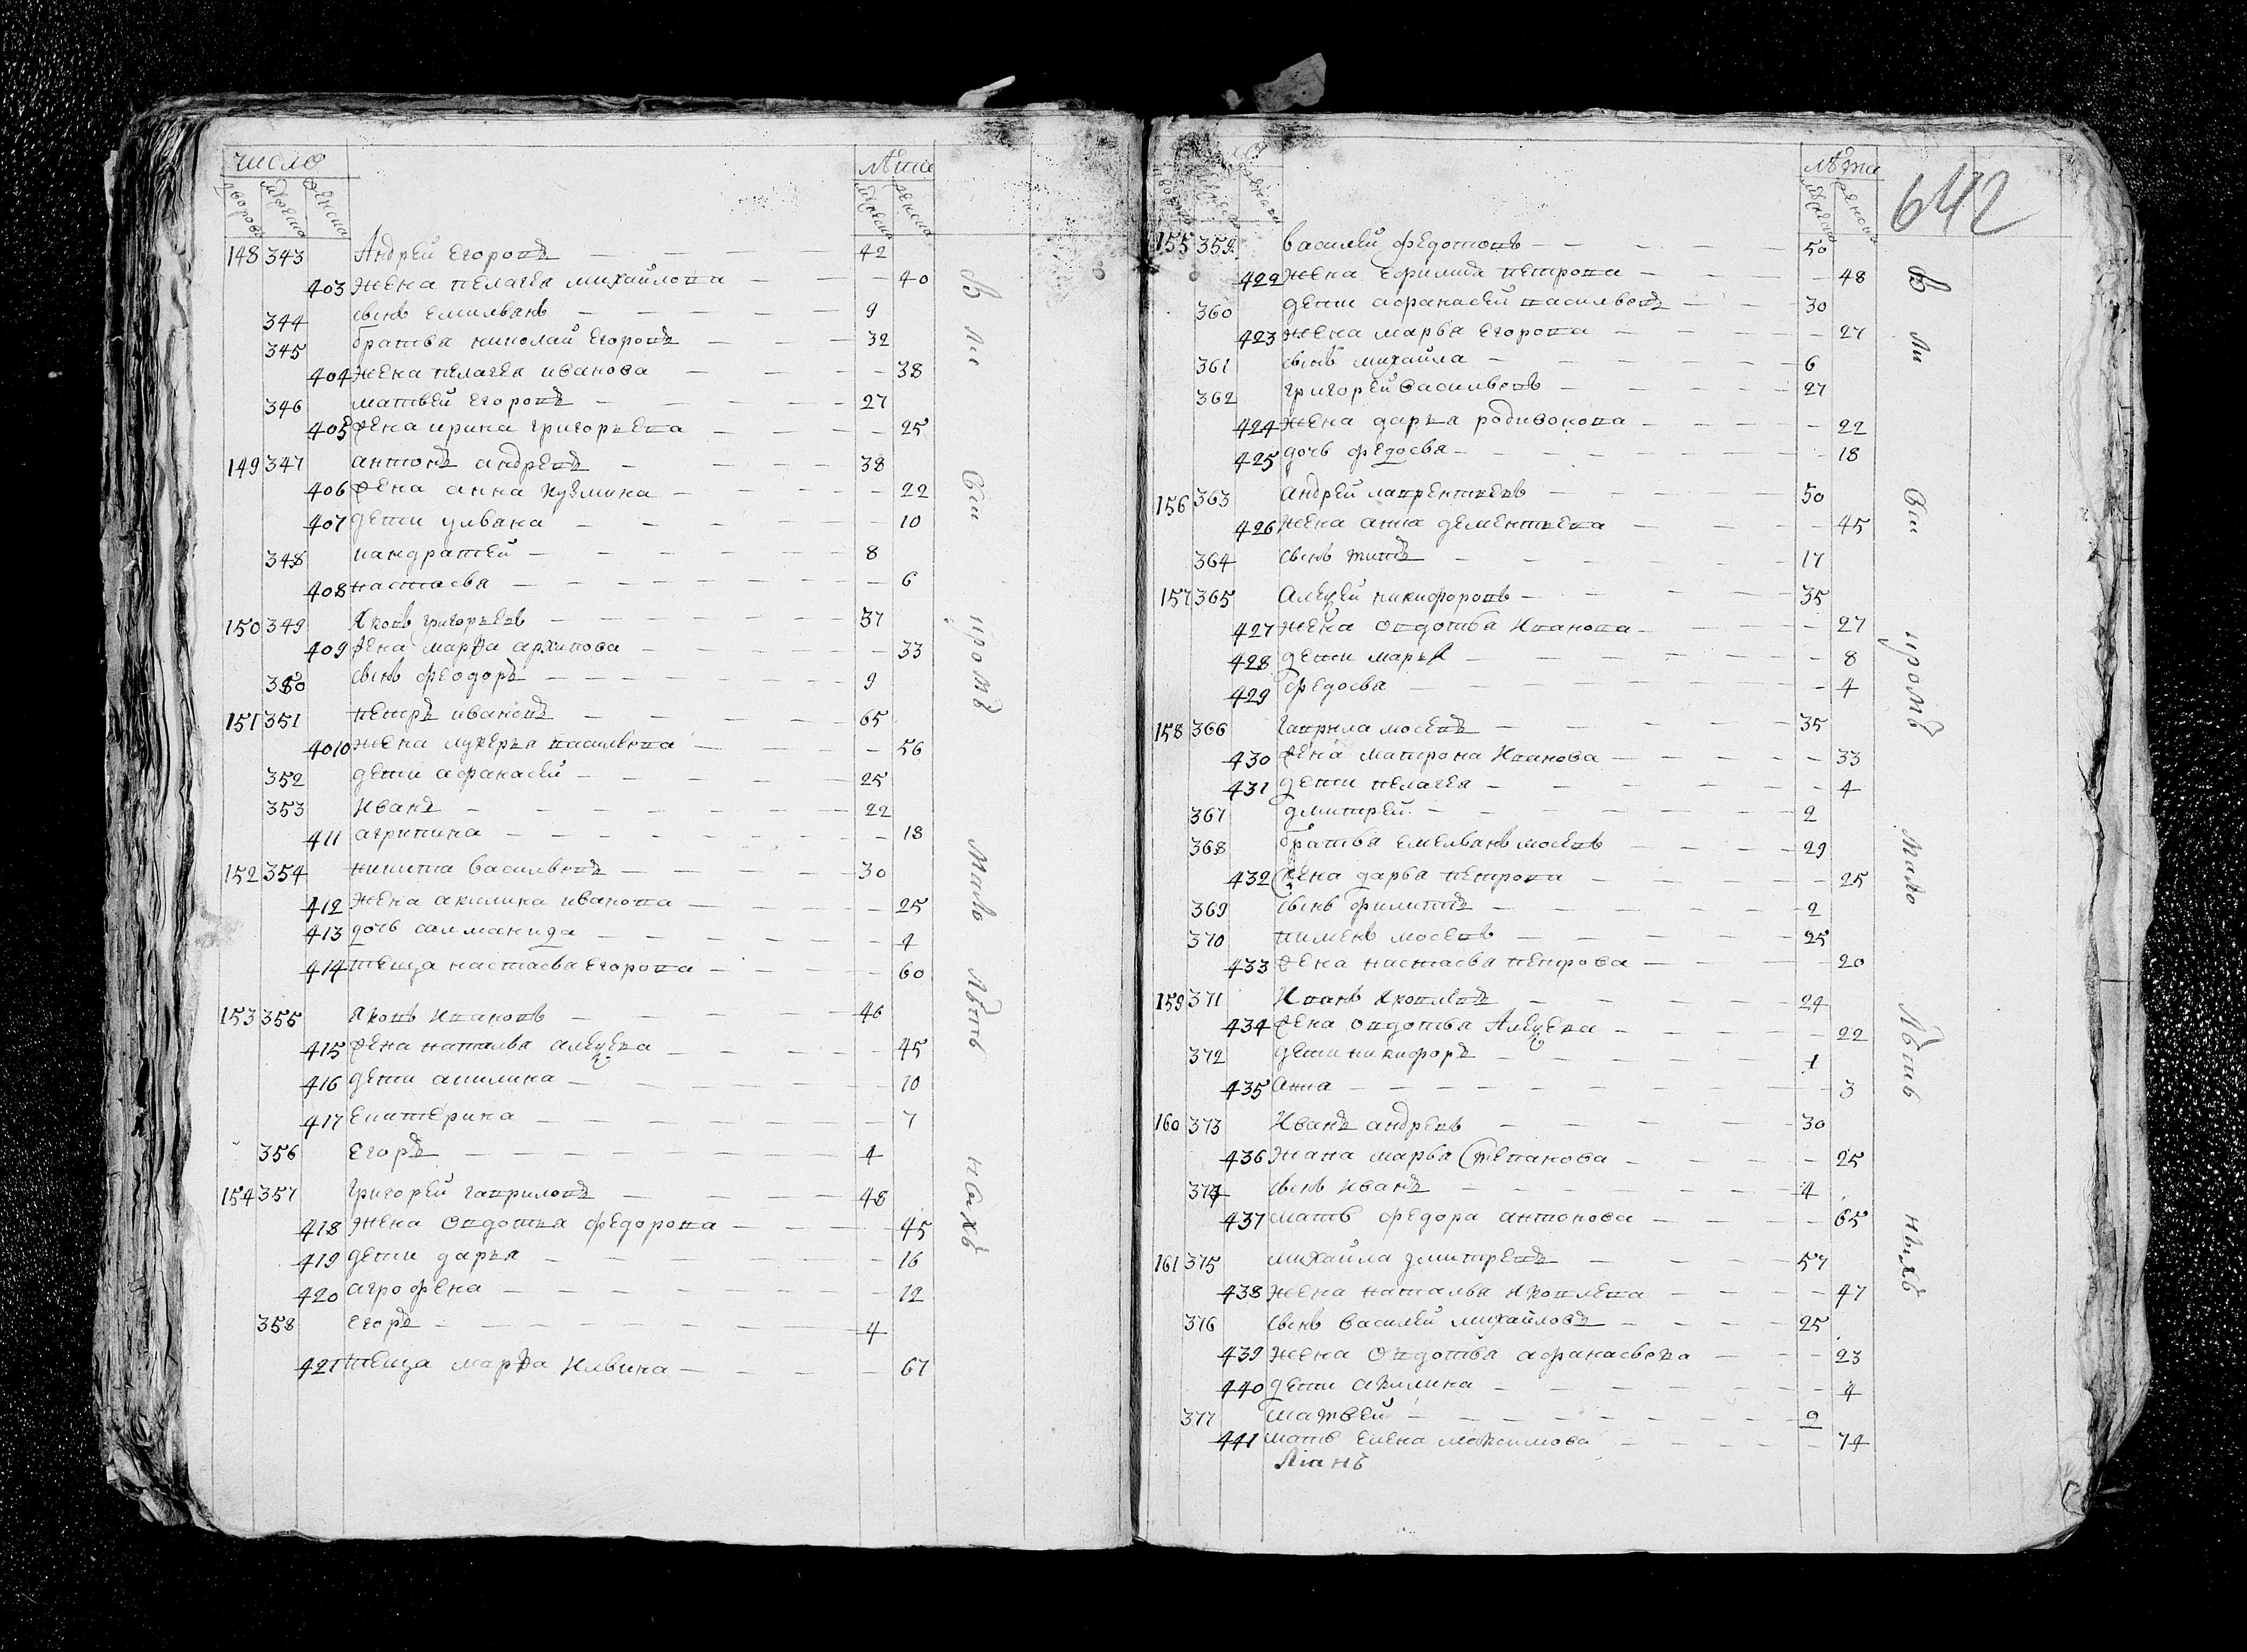 число лѣта
дворовъ мужеска женска мужеска женска
148 343 Андрей Егоровъ 42
403 жена пелагея михайлова 40
344 сынъ емильянъ 9
345 братья николай Егоровъ 32
404 жена пелагея иванова 38
346 матвей Егоровъ 27
405 жена ирина григорьева 25
149 347 антонъ андревъ 38
406 жена анна кузмина 22
407 дети ульяна 10
348 кандратей 8
408 настасья 6
150 349 Яковъ григорьевъ 37
409 жена марѳа архипова 33
350 сынъ феодоръ 9
151 351 петръ ивановъ 65
4010 жена лукерья васильева 56
352 дети афанасей 25
353 Иванъ 22
411 агрипина 18
152 354 никита васильевъ 30
412 жена акилина иванова 25
413 дочь саламанида 4
414 теща настасья Егорова 60
153 355 Яковъ Ивановъ 46
415 жена наталья алексева 45
416 дети акилина 10
417 Екатерина 7
356 Егоръ 4
154 357 григорей гавриловъ 48
418 жена овдотья федорова 45
419 дети дарья 16
420 агрофена 12
358 Егоръ 4
421 теща марѳа Ильина 67
В ли сти кромъ мало лѣт нихъ
лѣта
мужеска женска
642
155 359 василей федотовъ 50
422 жена Ефимида петрова 48
360 дети афанасей васильевъ 30
423 жена марья Егорова 27
361 сынъ михайла 6
362 григорей васильевъ 27
424 жена дарья родивонова 22
425 дочь федосья 18
156 363 андрей лаврентьевъ 50
426 жена анна дементьева 45
364 сынъ титъ 17
157 365 Алексей никифоровъ 35
427 жена овдотья Иванова 27
428 дети марья 8
429 федосья 4
158 366 гаврила мосевъ 35
430 жена матрона Иванова 33
431 дети пелагея 4
367 дмитрей 2
368 братья емельянъ мосевъ 29
432 жена дарья петрова 25
369 сынъ филиппъ 2
370 пименъ мосевъ 25
433 жена настасья петрова 20
159 371 Иванъ Яковлевъ 24
434 жена овдотья Алексева 22
372 дети никифоръ 1
435 анна 3
160 373 Иванъ андревъ 30
436 жана марья Степанова 25
374 сынъ Иванъ 4
437 мать федора антонова 65
161 375 михайла дмитревъ 57
438 жена наталья Яковлева 47
376 сынъ василей михайловъ 25
439 жена овдотья афанасьева 23
440 дети акилина 4
377 матвей 2
441 мать елена максимова 74
В ли сти кромъ мало лѣть ныхъ